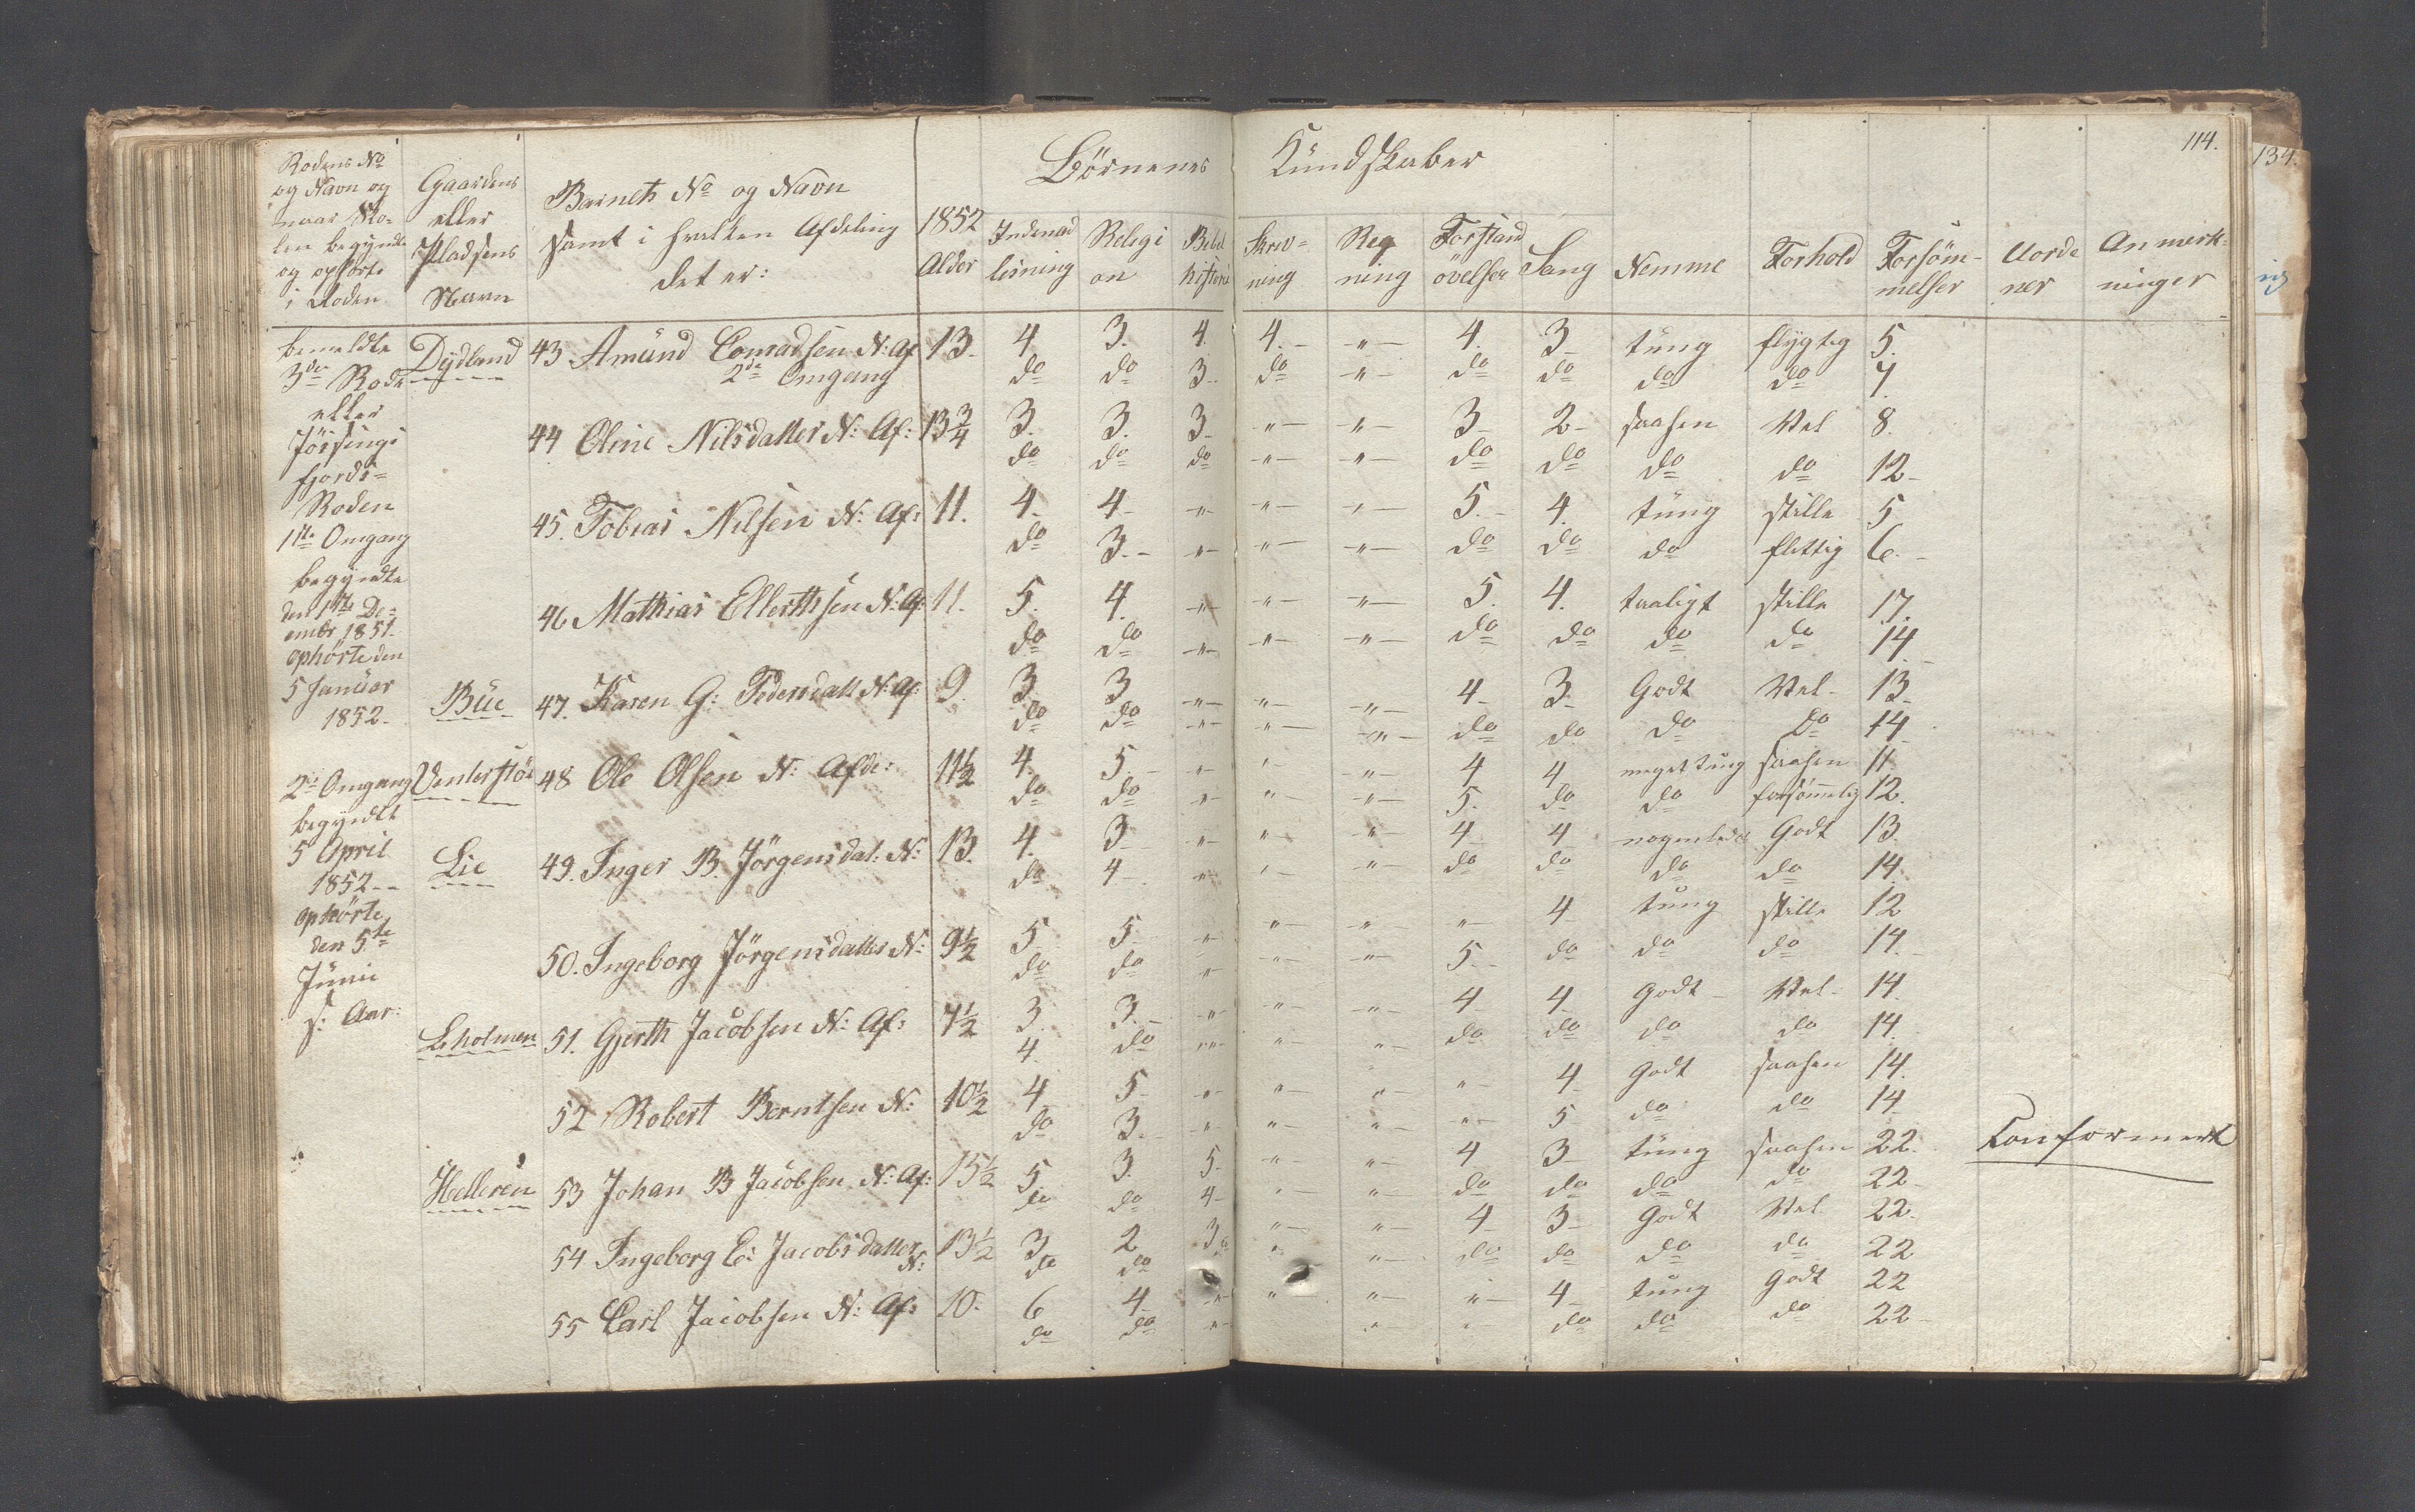 114.
134.
Börnenes Kündskaber
Rodens No
og Navn og
naar Sko-
len begyndte
og ophörte
i Roden
Gaardens
eller
Pladsens
Navn
Barnets No og Navn
samt i hvilken Afdeling
det er:
1852
Alder
Indenad
læsning
Religi
on
Bibel
historie
Skriv=
ning
Reg
ning
Forstand
övelser
Sang
Nemme
Forhold
Forsöm-
melser
Uorde
ner
Anmerk-
ninger
bemeldte
3die Rode
eller
Jössings
fjords=
Roden
1ste Omgang
begyndte
den 1ste De=
embr 1851.
ophörte den
5 Januar
1852.
2de Omgang
begyndte
5 April
1852--
ophörte
den 5te
Junii
s: Aar:
Dydland 43 Amund Conradsen N: Af 13. 4. 3. 4. 4.- -"- 4. 3 tung flygtig 5.
2de Omgang do do 3- do -"- do do do do 7.
44 Oline Nilsdatter N: Af: 13 3/4 3. 3. 3 -"- -"- 3 2- saasen Vel 8.
do do do -"- -"- do do do do 12-
45. Tobias Nilsen N: Af: 11. 4. 4- -"- -"- -"- 5.- 4. tung stille 5
do 3.- -"- -"- -"- do do do flittig 6.-
46 Mathias Ellertsen N: Af: 11. 5. 4. -"- -"- -"- 5. 4. taaligt stille 17.
do do -"- -"- -"- do do do do 14
Büe 47. Karen G: Pedersdatt N: Af: 9. 3. 3 -"- -"- -"- 4- 3- Godt Vel- 13-
do do -"- -"- -"- do do do do 14
48 Ole Olsen N: Afde: 11½ 4. 5- -"- -"- -"- 4 4 meget tung saasen 11.
do do -"- -"- -"- 5. do do forsömmelig 12.
Lie 49. Inger B. Jörgensdat: N: 13. 4. 3- -"- -"- -"- 4- 4 nogenledes Godt 13.
do 4- -"- -"- -"- do do do do 14.
50. Ingeborg Jörgensdatter N: 9½ 5 5- -"- -"- -"- -"- 4 tung stille 12
do do -"- -"- -"- 5- do do do 14.
Leholmen 51. Gjerth Jacobsen N: Af: 7½ 3. 3.- -"- -"- -"- 4 4 Godt Vel- 14.
4. do -"- -"- -"- do do do do 14.
52 Robert Berntsen N: 10½ 4 5- -"- -"- -"- -"- 4 Godt saasen 14.
do 3.- -"- -"- -"- -"- 5 do do 14
Helleren 53 Johan B Jacobsen N: Af: 15½ 5. 3. 5- -"- -"- 4 3- tung saasen 22. Confermert
do do 4- -"- -"- do do do do 22-
54 Ingeborg E: Jacobsdatter N: 13½ 3 2 3 -"- -"- 4- 3- Godt Vel 22.
do do -"- -"- do do do do 22
55 Carl Jacobsen N: Af: 10. 6 4- -"- -"- -"- -"- 4- tung Godt 22
do do -"- -"- -"- do do do 22-